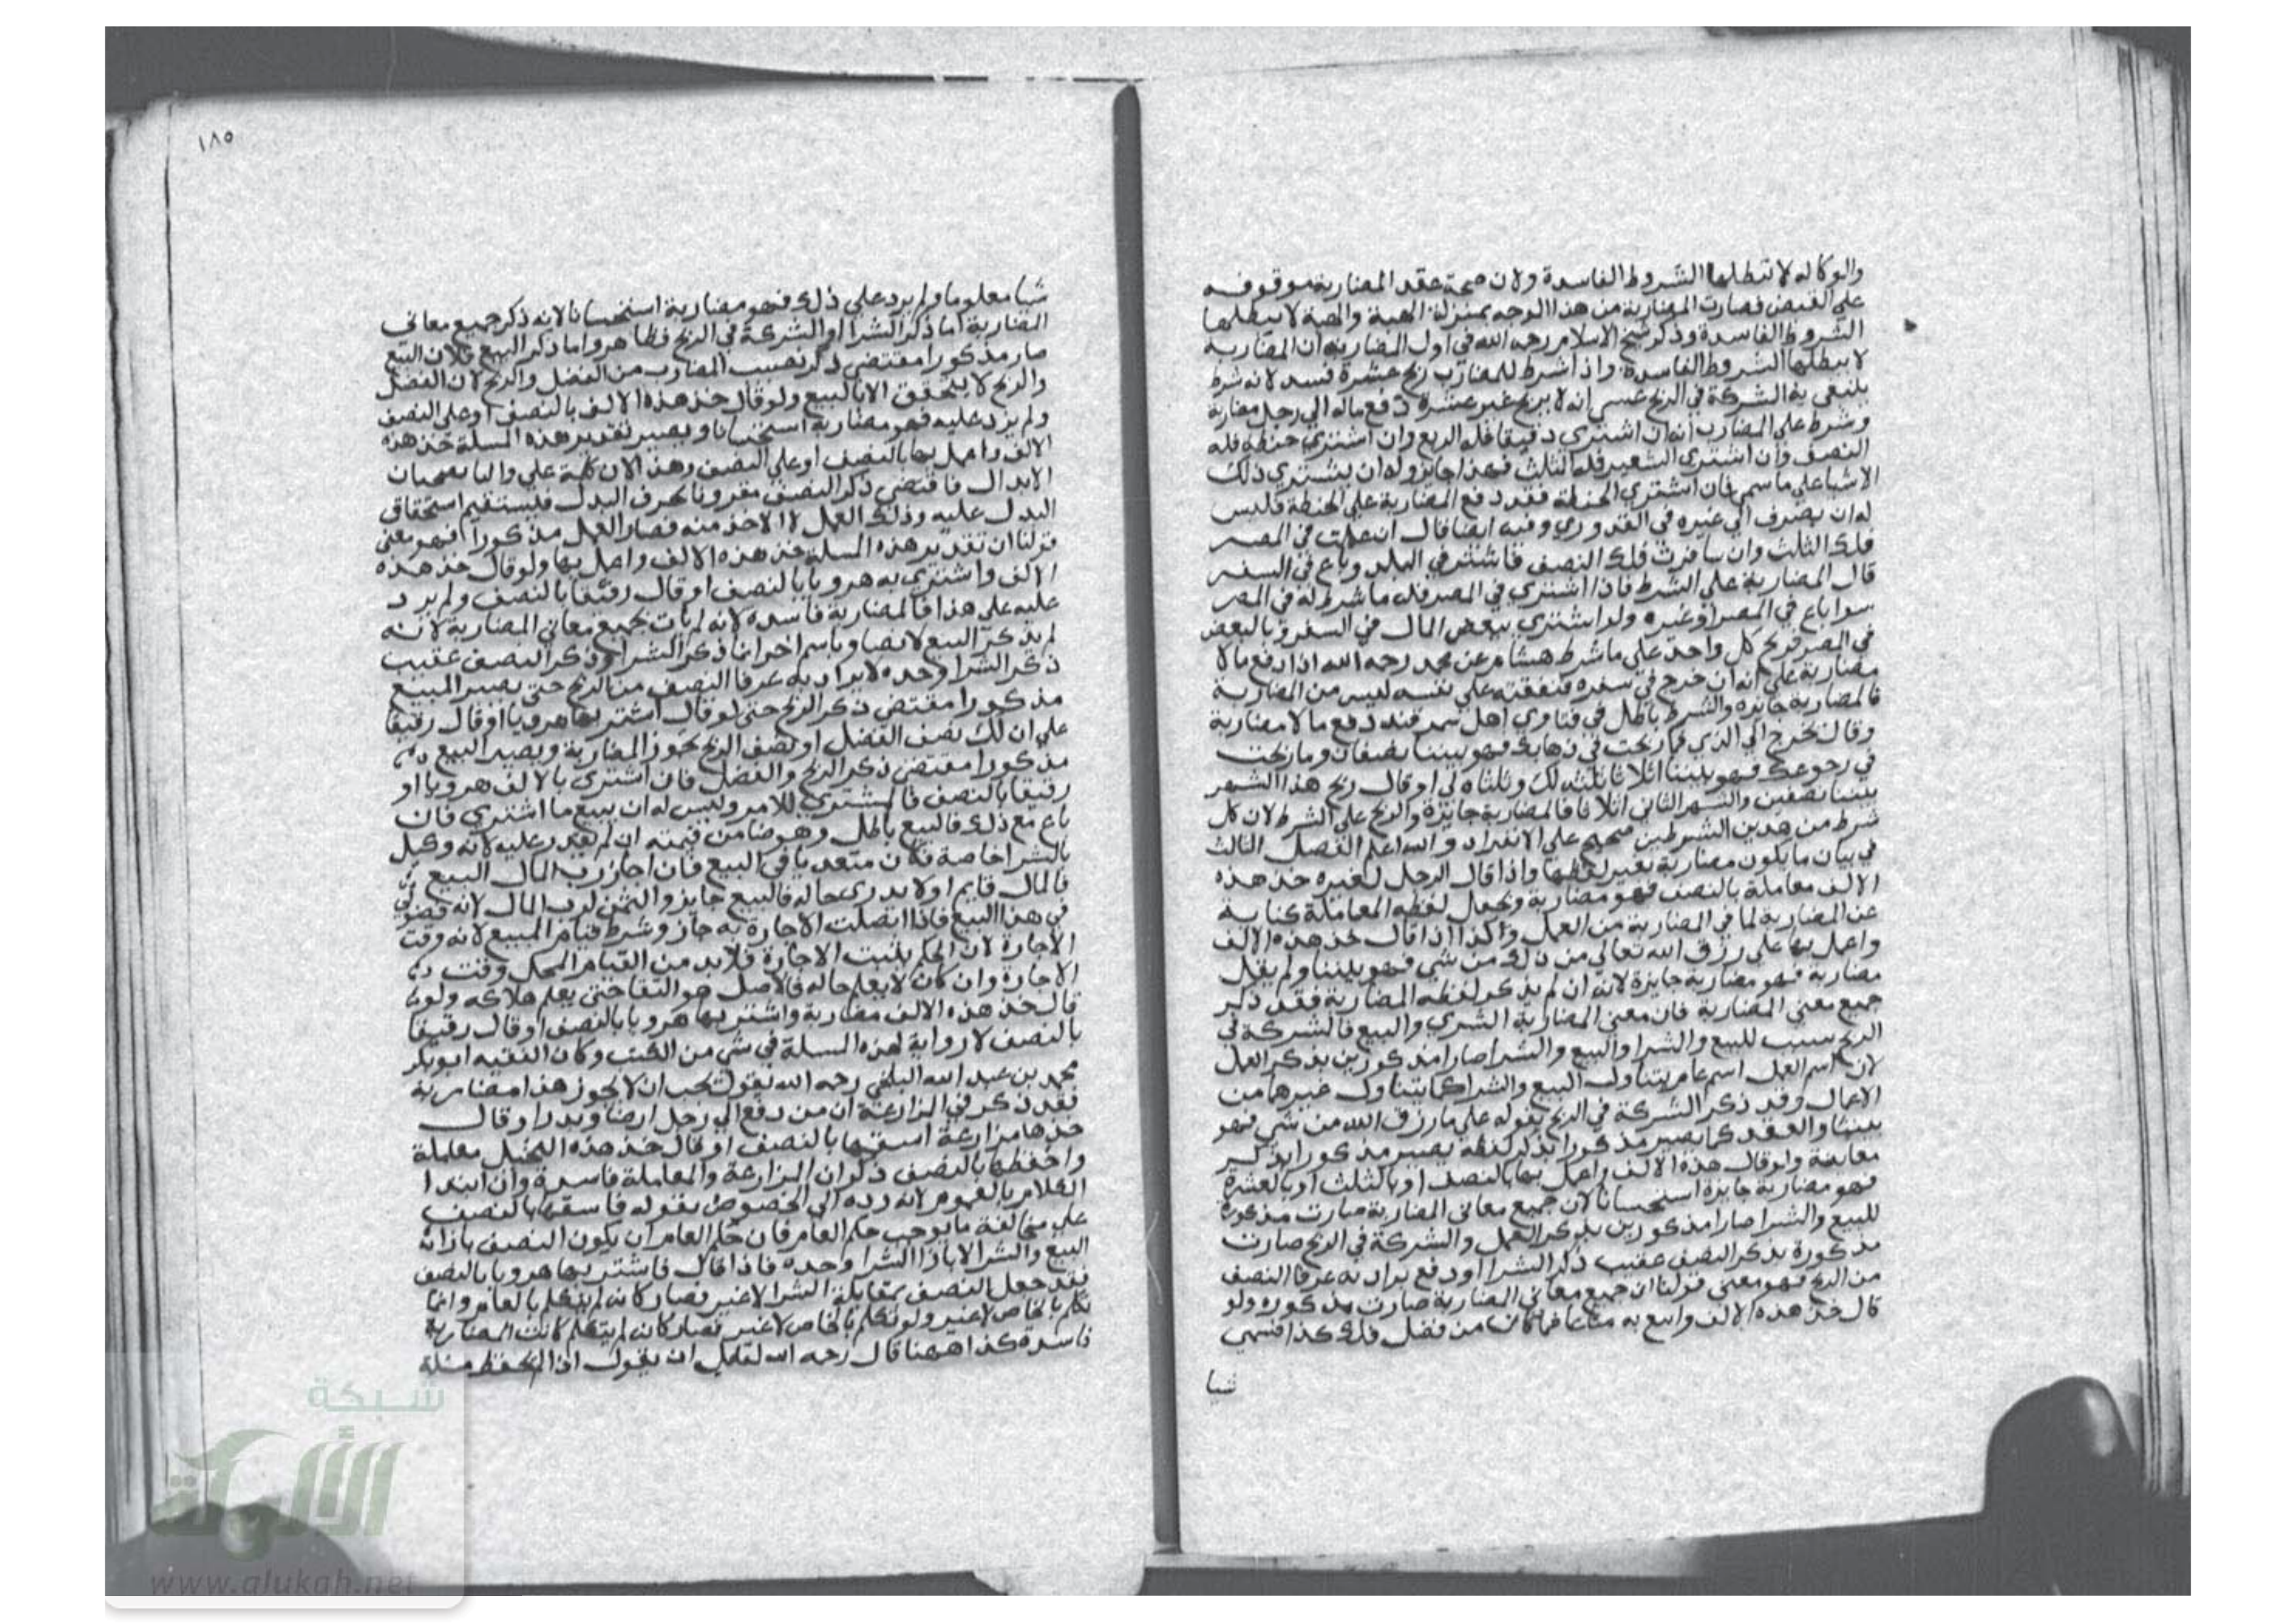 والوكاله لا تبطلها الشروط الفاسدة ولان صحة عقد المضاربة موقوفه
علي القبض فصارت المضاربة من هذا الوجه بمنزلة الهبة والهبة لا يبطلها
الشروط الفاسدة وذكر شيخ الاسلام رحمه الله في اول المضاربة ان المضاربة
لا يبطلها الشروط الفاسدة واذا شرط للمضارب ربح عشرة فسد لانه شرط
ينتفي به الشركة في الربح عسي انه لا يربح غير عشرة دفع ماله الي رجل مضاربة
وشرط علي المضارب انه ان اشتري دقيقا فله الربع وان اشتري حنطه فله
النصف وان اشتري الشعير فله الثلث فهذا جايز وله ان يشتري ذلك
الاشيا علي ما سمي فان اشتري الحنطة فقد دفع المضاربة علي الحنطة فليس
له ان يصرف الي غيره في القدوري وفيه ايضا قال ان عملت في المصر
فلك الثلث وان سافرت فلك النصف فاشتري في البلد وباع في السفر
قال المضاربة علي الشرط فاذا اشتري في المصر فله ما شرط له في المصر
سوا باع في المصر او غيره ولو اشتري ببعض المال في السفر وبالبعض
في المصر فربح كل واحد علي ما شرط هشام عن محمد رحمه الله اذا دفع مالا
مضاربة علي انه ان خرج في سفره فنفقته علي نفسه ليس من المضاربة
فالمضاربة جايزه والشرط باطل في فتاوي اهل سمرقند دفع مالا مضاربة
وقال تخرج الي الذي فما ربحت في ذهابك فهو بيننا نصفان وما ربحت
في رجوعك فهو بيننا اثلاثا ثلثه لك وثلثاه لي او قال ربح هذا الشهر
بيننا نصفين والشهر الثاني اثلاثا فالمضاربة جايزة والربح علي الشرط لان كل
شرط من هدين الشرطين صحيح علي الانفراد والله اعلم الفصل الثالث
في بيان ما يكون مضاربة بغير لفظها واذا قال الرجل لغيره خذ هذه
الالف معاملة بالنصف فهو مضاربة ويجعل لفظه المعاملة كناية
عن المضاربة لما في المضاربة من العمل وكذا اذا قال خذ هذه الالف
واعمل بها علي رزق الله تعالي من ذلك من شي فهو بيننا ولم يقل
مضاربة فهو مضاربة جايزة لانه ان لم يذكر لفظه المضاربة فقد ذكر
جميع معني المضاربة فان معني المضاربة الشري والبيع فالشركة في
الربح سبب للبيع والشرا والبيع والشرا صارا مذكورين بذكر العمل
لان اسم العمل اسم عام يتناول البيع والشرا كما يتناول غيرهما من
الاعمال وقد ذكر الشركة في الربح بقوله علي ما رزق الله من شي فهو
بيننا والعقد كما يصير مذكورا بذكر لفظه يصير مذكورا بذكر
معانيه ولو قال هذه الالف واعمل بها بالنصف او بالثلث او بالعشرة
فهو مضاربة جايزة استحسانا لان جميع معاني المضاربة صارت مذكورة
للبيع والشرا صارا مذكورين بذكر العمل والشركة في الربح صارت
مذكورة بذكر النصف عقيب ذكر الشرا او دفع يراد به عرفا النصف
من الربح فهو معني قولنا ان جميع معاني المضاربة صارت مذكوره ولو
قال خذ هذه الالف وابيع به متاعا فما كان من فضل فلك كذا فسمي
شيا
١٨٥
شيا معلوما ولم يرد علي ذلك فهو مضاربة استحسانا لانه ذكر جميع معاني
المضاربة اما ذكر الشرا او الشركة في الربح فظاهر واما ذكر البيع فلان البيع
صار مذكورا مقتضي ذكر نصيب المضارب من الفضل والربح لان الفضل
والربح لا يتحقق الا بالبيع ولو قال خذ هذه الالف بالنصف او علي النصف
ولم يزد عليه فهو مضاربة استحسانا ويصير تقدير هذه المسلة خذ هذه
الالف واعمل بها بالنصف او علي النصف وهذا لان كلمة علي والبا يصحبان
الابدال فاقتضي ذكر النصف مقرونا بحرف البدل فليستقيم استحقاق
البدل عليه وذلك العمل لا الاخذ منه فصار العمل مذكورا فهو معني
قولنا ان تقدير هذه المسلة خذ هذه الالف واعمل بها ولو قال خذ هذه
الالف واشتري به هرويا بالنصف او قال رقيقا بالنصف ولم يرد
عليه علي هذا فالمضاربة فاسده لانه لم يات بجميع معاني المضاربة لانه
لم يذكر البيع لا نصا وباسم اخر انما ذكر الشرا وذكر النصف عقيب
ذكر الشرا وحده لا يراد به عرفا النصف من الربح حتي يصير المبيع
مذكورا مقتضي ذكر الربح حتي لو قال اشتر بها هرويا او قال رقيقا
علي ان لك نصف الفضل او نصف الربح يجوز المضاربة ويصير البيع
مذكورا مقتضي ذكر الربح والفضل فان اشتري بالالف هرويا او
رقيقا بالنصف فالمشتري للامر وليس له ان يبيع ما اشتري فان
باع مع ذلك فالبيع باطل وهو ضامن قيمته ان لم يقدر عليه لانه وكيل
بالشرا خاصة فكان متعديا في البيع فان اجاز رب المال البيع
فالمال قايم او لا يدري حاله فالبيع جايز والثمن لرب المال لانه فضولي
في هذا البيع فاذا اتصلت الاجازة به جاز وشرط قيام المبيع لانه وقت
الاجازة لان الحكم يثبت الاجازة فلا بد من القيام المحل وقت
الاجازة وان كان لا يعلم حاله فالاصل هو البقا حتي يعلم هلاكه ولو
قال خذ هذه الالف مضاربة واشتر بها هرويا بالنصف او قال رقيقا
بالنصف لا رواية لهذه المسلة في شي من الكتب وكان الفقيه ابو بكر
محمد بن عبد الله البلخي رحمه الله يقول يجب ان لا يجوز هذا مضاربة
فقد ذكر في المزارعة ان من دفع الي رجل ارضا وبذرا وقال
خذها مزارعة اسقها بالنصف او قال خذ هذه النخيل معاملة
واحفظها بالنصف ذكر ان المزارعة والمعاملة فاسدة وان ابتدا
الكلام بالعموم لانه رده الي الخصوص بقوله فاسقها بالنصف
علي مخالفة ما يوجب حكم العام فان حكم العام ان يكون النصف بازا
البيع والشرا لا بازا الشرا وحده فاذا قال فاشتر بها هرويا بالنصف
فقد جعل النصف بمقابلة الشرا لا غير فصار كانه لم يتكلم بالعام وانما
تكلم بالخاص لا غير ولو تكلم بالخاص لا غير فصار كانه لم يتكلم كانت المضاربة
فاسدة كذا ههنا قال رحمه الله لقايل ان يقول اذا لم يحفظ مسلة
شبكة
الألوكة
www.alukah.net